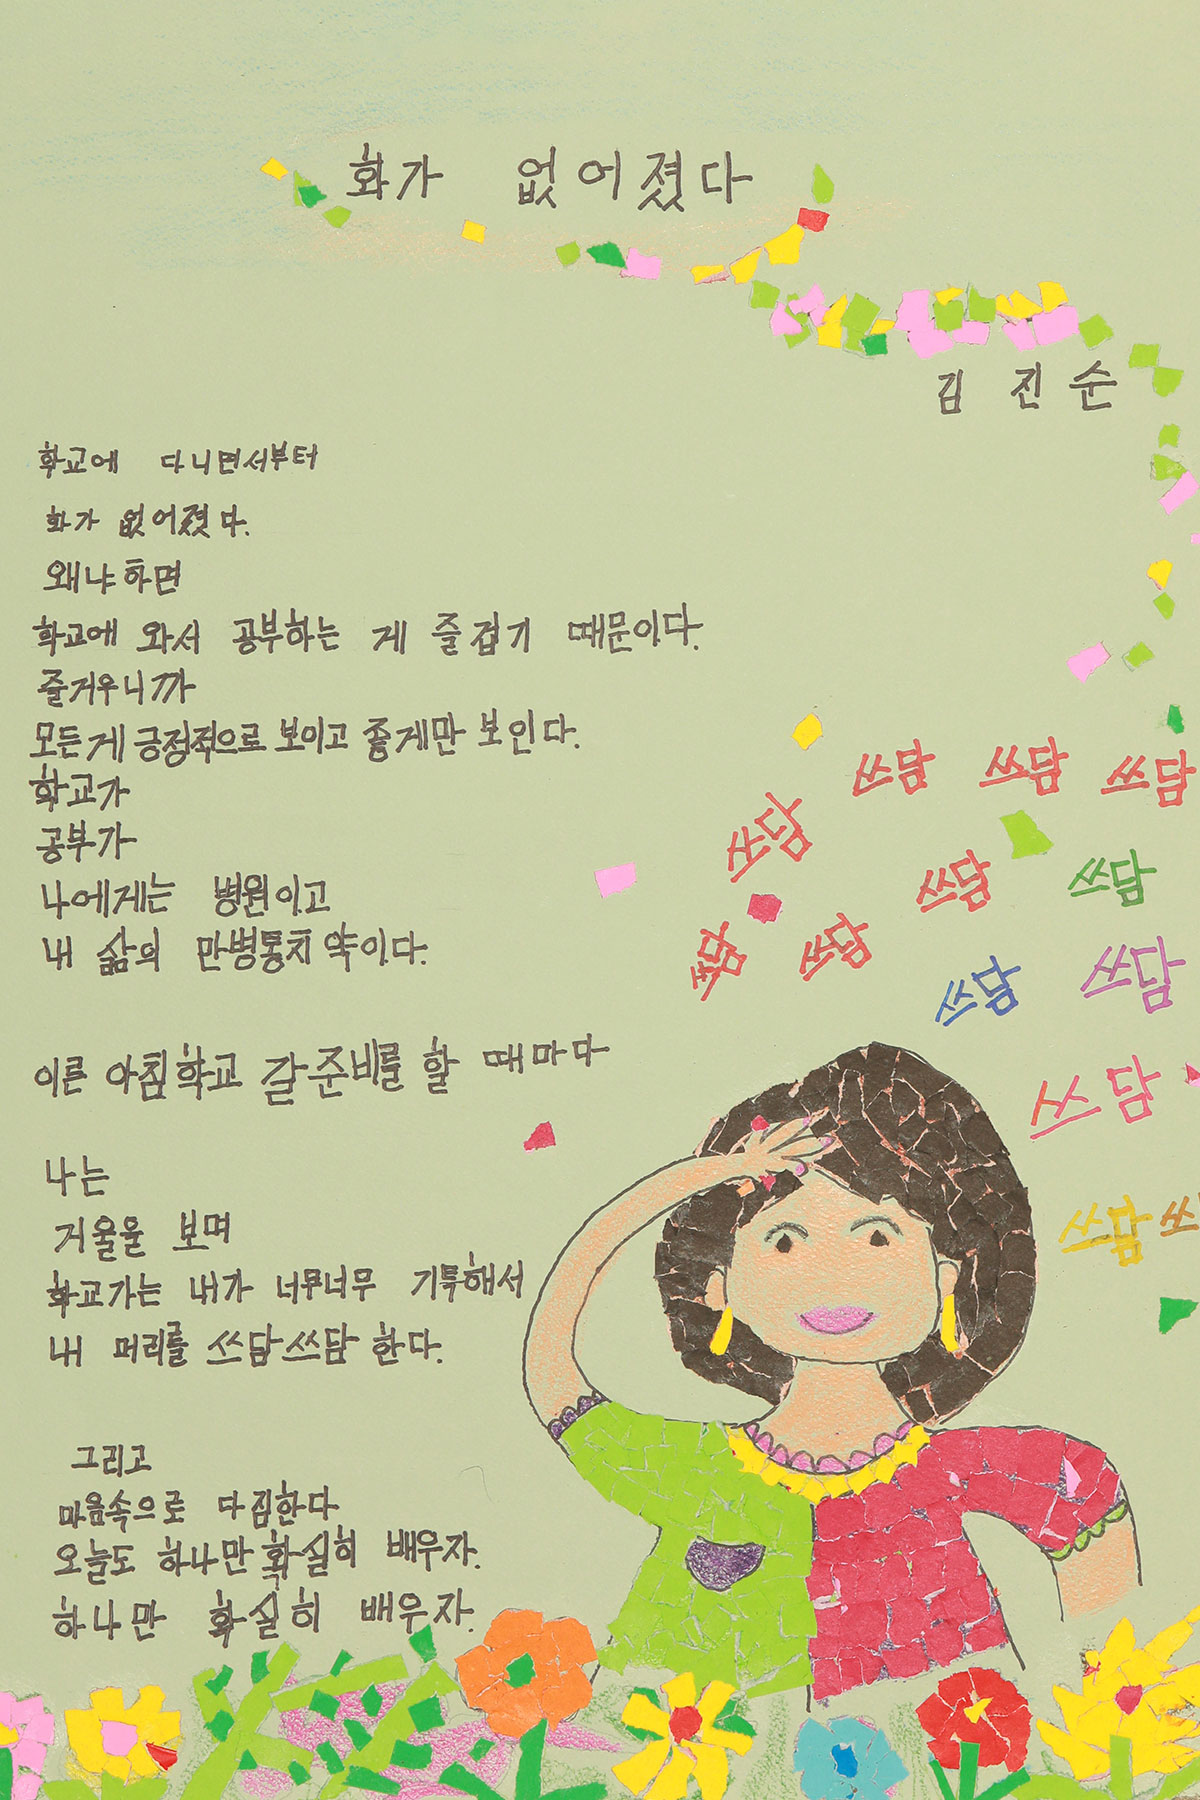 화가 없어졌다
김 진 순
학교에 다니면서부터
화가 없어졌다.
왜냐하면
학교에 와서 공부하는 게 즐겁기 때문이다.
즐거우니까
모든게 긍정적으로 보이고 좋게만 보인다.
학교가
공부가
나에게는 병원이고
내 삶의 만병통치 약이다.
이른 아침학교 갈 준비를 할 때마다
나는
거울을 보며
학교가는 내가 너무너무 기특해서
내 머리를 쓰담쓰담 한다.
그리고
마음속으로 다짐한다
오늘도 하나만 확실히 배우자.
하나만 확실히 배우자.
쓰담 쓰담 쓰담
쓰담 쓰담 쓰담
쓰담 쓰담 쓰담 쓰담
쓰담
쓰담 쓰